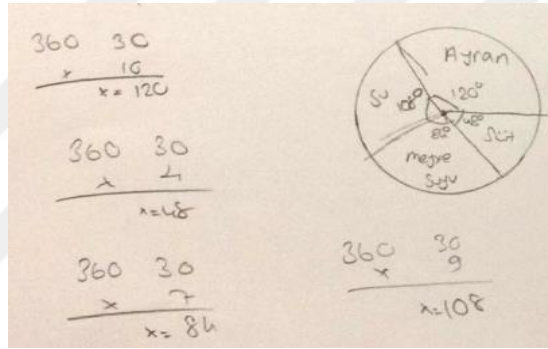 360 30
x 10
x = 120
360 30
x 4
x=48
360 30
x 7
x= 84
Ayran
120°
Su
108°
48°
Süt
meyve
Suyu
360 30
x 9
x=108